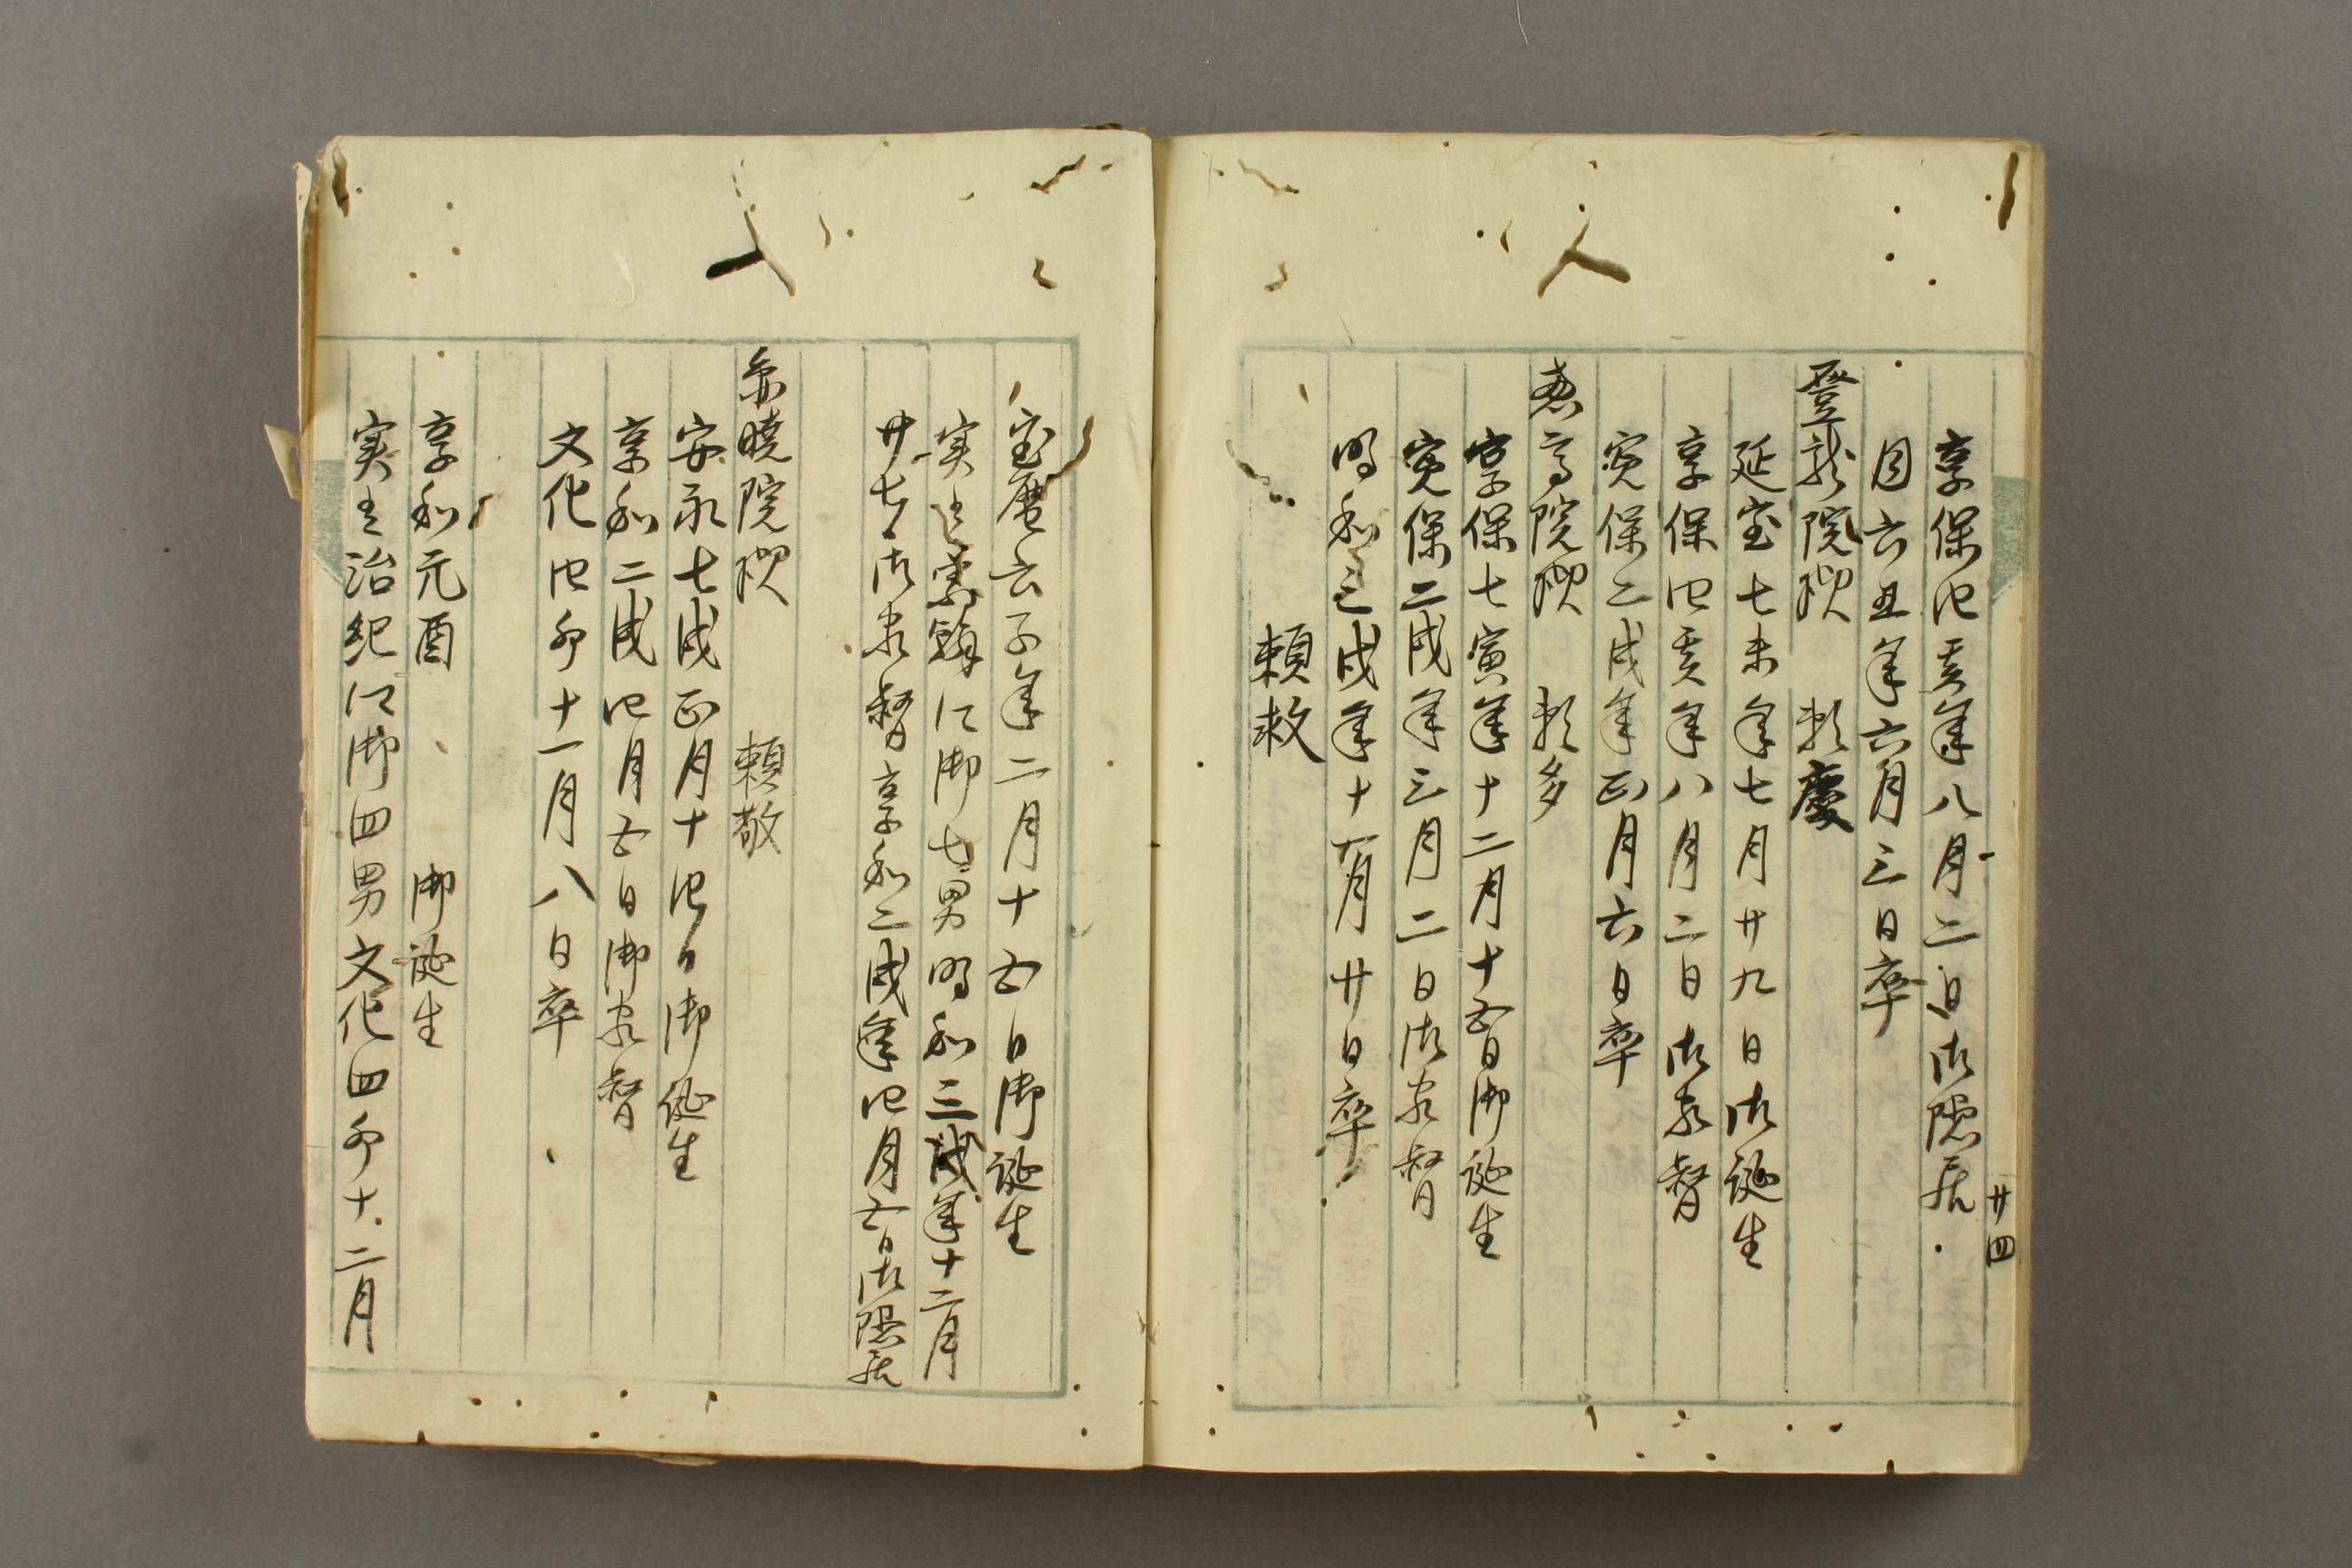 廿四
享保四亥年八月二日御隠居
同六丑年六月三日卒
登龍院様 頼慶
延宝七未年七月廿九日御誕生
享保四亥年八月二日御家督
寛保二戌年正月六日卒
恵高院様 頼多
享保七寅年十二月十五日御誕生
寛保二戌年三月二日御家督
明和三戌年十一月廿日卒
頼救
宝暦六子年二月十五日御誕生
実者宗翰公御七男明和三戌年十二月
廿七日御家督享和二戌年四月五日御隠居
暁院様 頼敬
安永七戌正月十四日御誕生
享和二戌四月五日御家督
文化四卯十一月八日卒
享和元酉 御誕生
実者治紀公御四男文化四卯十二月